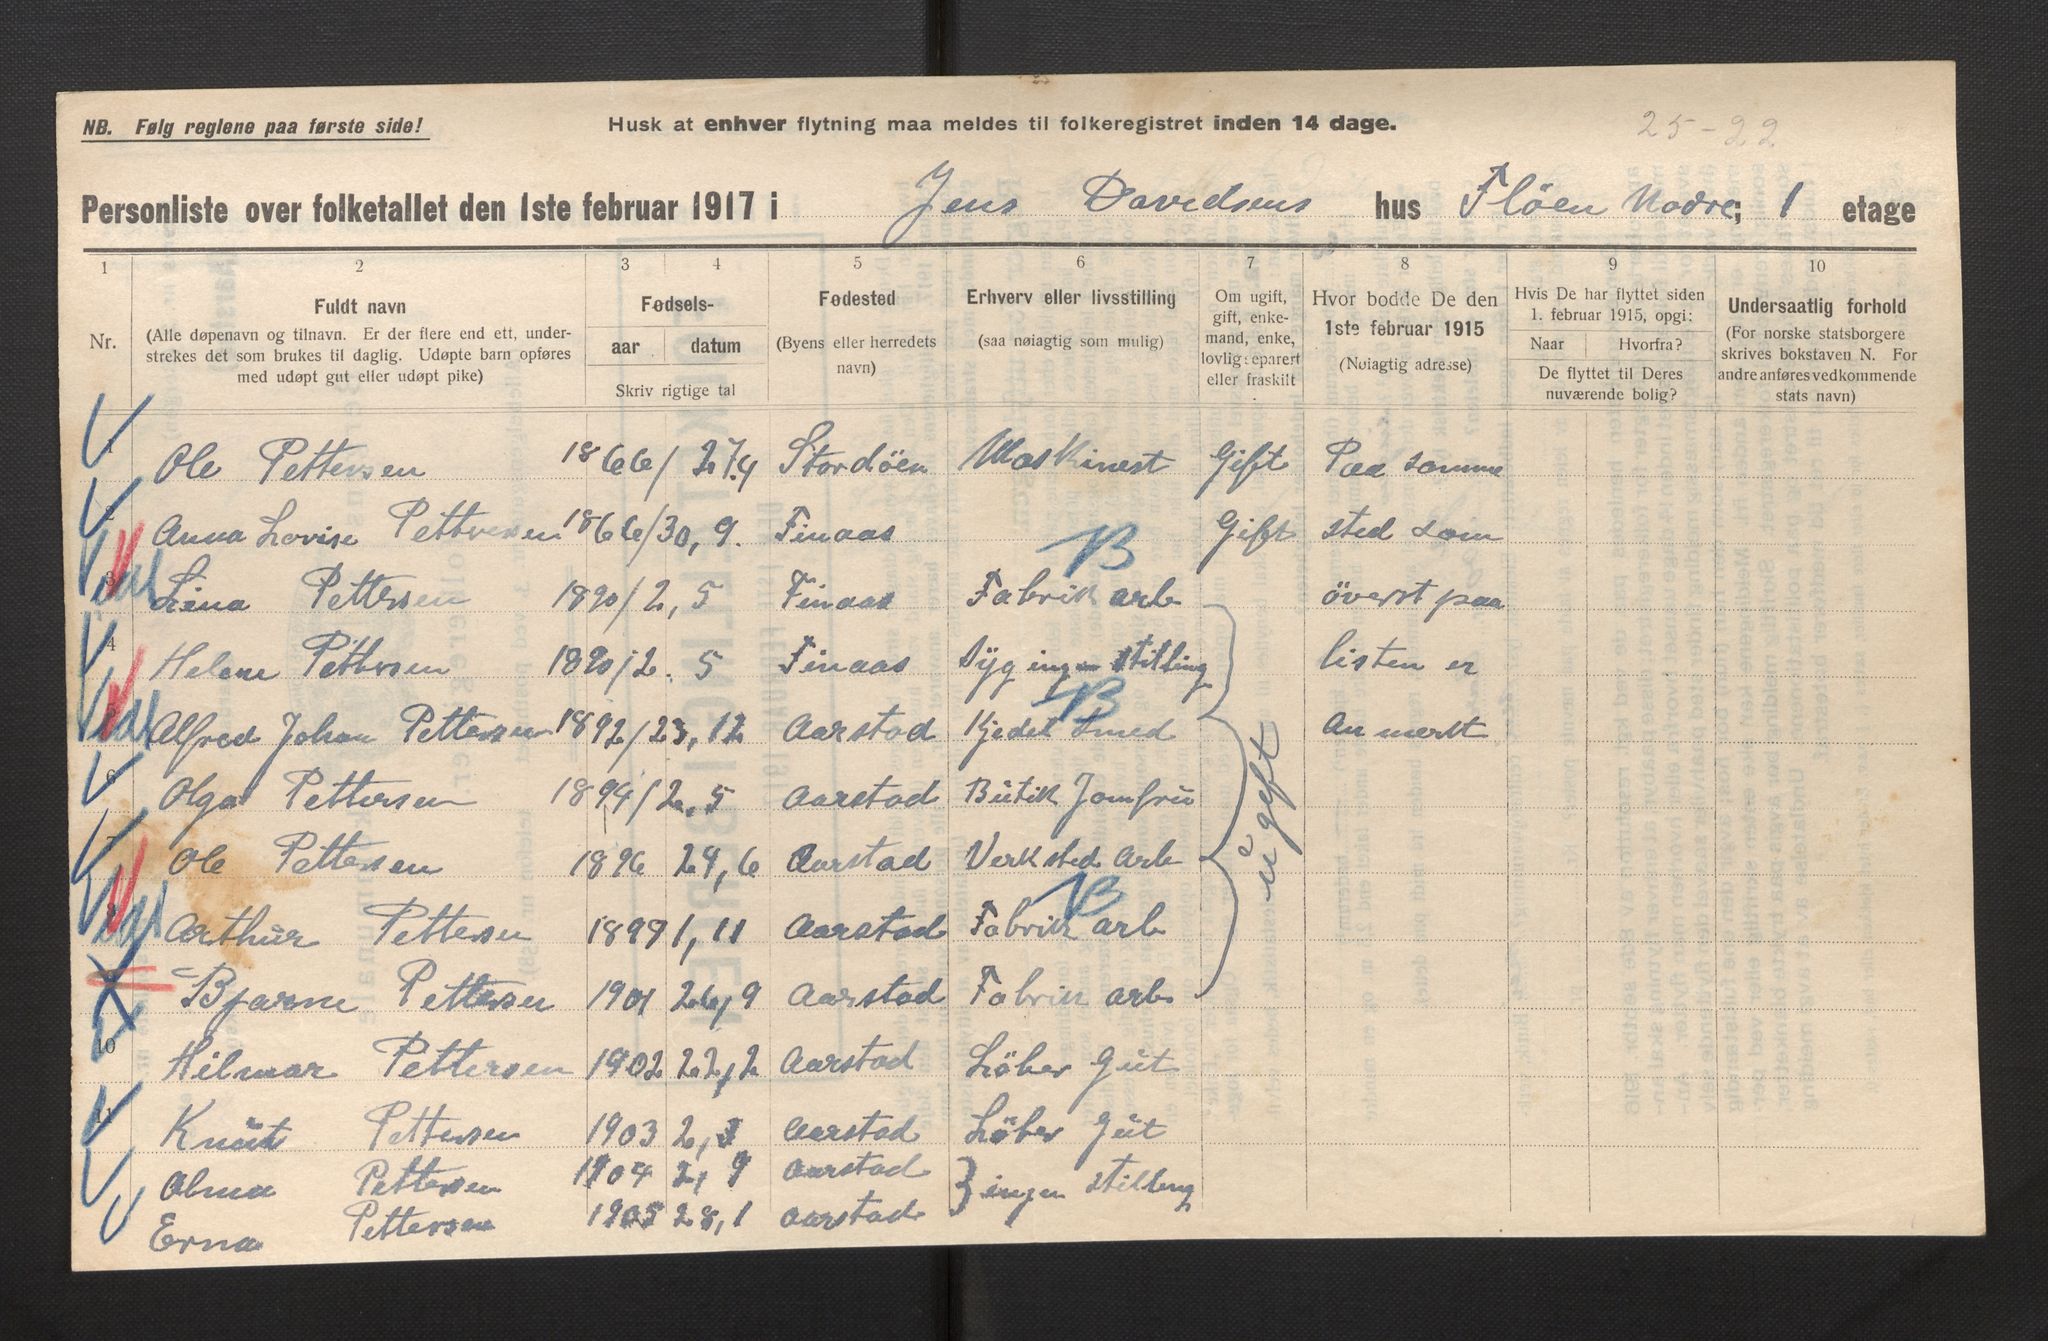 NB. Følg reglene paa første side!
Husk at enhver flytning maa meldes til folkeregistret inden 14 dage.
25-22
Personliste over folketallet den 1ste februar 1917 i Jens Davidsens hus Fløen Nodre; 1 etage
1 2 3 4 5 6 7 8 9 10
Nr.
Fuldt navn
(Alle døpenavn og tilnavn. Er der flere end ett, under-
strekes det som brukes til daglig. Udøpte barn opføres
med udøpt gut eller udøpt pike)
Fødsels-
aar datum
Skriv rigtige tal
Fødested
(Byens eller herredets
navn)
Erhverv eller livsstilling
(saa nøiagtig som mulig)
Om ugift,
gift, enke-
mand, enke,
lovlig separert
eller fraskilt
Hvor bodde De den
1ste februar 1915
(Nøiagtig adresse)
Hvis De har flyttet siden
1. februar 1915, opgi:
Naar Hvorfra?
De flyttet til Deres
nuværende bolig?
Undersaatlig forhold
(For norske statsborgere
skrives bokstaven N. For
andre anføres vedkommende
stats navn)
1 Ole Pettersen 1866/ 27,4 Stordöen Maskinest Gift Paa samme
2 Anna Lovise Pettersen 1866/30, 9. Finaas Gift sted som
3 Lina Pettersen 1890/2, 5 Finaas Fabrik arb B överst paa
4 Helene Pettersen 1890/2. 5 Finaas Syg ingen stilling listen er
5 Alfred Johan Pettersen 1892/23, 12 Aarstad Kjedel Smed B an merkt
6 Olga Pettersen 1894/2, 5 Aarstad Butik Jomfru
ugift
7 Ole Pettersen 1896 24, 6 Aarstad Verksted arb
8 Arthur Pettersen 1899 1, 11 Aarstad Fabrik arb B
Bjarne Pettersen 1901 26, 9 Aarstad Fabrik arb
10 Hilmar Pettersen 1902 22, 2 Aarstad Löber Gut
11 Knut Pettersen 1903 2, Aarstad Löber Gut
Alma Pettersen 1904 2, 9 Aarstad } ingen stilling
Erna Pettersen 1905 28, 1 Aarstad